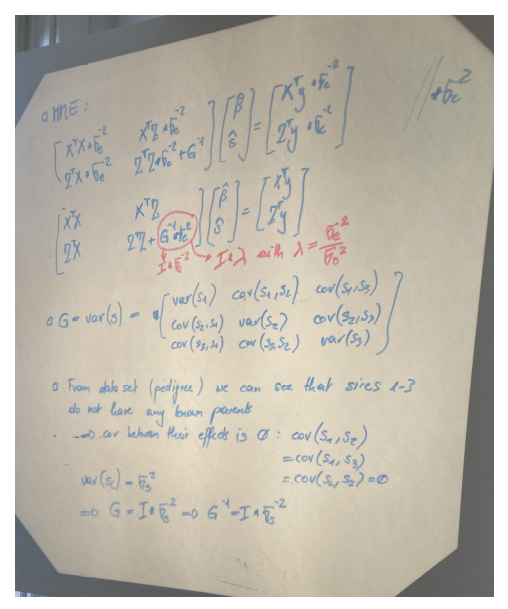 □ MME:
[XᵀX*σe⁻² XᵀZ*σe⁻²] [β̂] = [Xᵀy*σe⁻²] // *σe²
[ZᵀX*σe⁻² ZᵀZ*σe⁻²+G⁻¹] [ŝ] [Zᵀy*σe⁻²]
[XᵀX XᵀZ] [β̂] = [Xᵀy]
[ZᵀX ZᵀZ + G⁻¹*σe²] [ŝ] [Zᵀy]
I*σs⁻² → I*λ with λ = σe²/σs²
□ G = var(s) = [var(s1) cov(s1,s2) cov(s1,s3)]
[cov(s2,s1) var(s2) cov(s2,s3)]
[cov(s3,s1) cov(s3,s2) var(s3)]
□ From data set (pedigree) we can see that sires 1-3
do not have any known parents
=> cov between their effects is 0: cov(s1,s2)
= cov(s1,s3)
var(si) = σs² = cov(s2,s3) = 0
=> G = I*σs² => G⁻¹ = I*σs⁻²